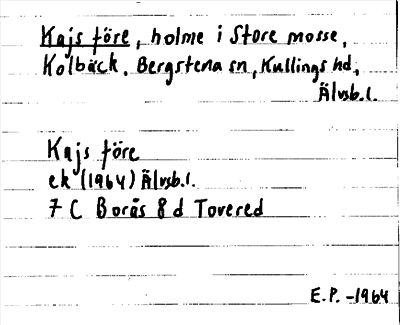 Kajs före, holme i Store mosse,
Kolbäck. Bergstena sn, Kullings hd,
Älvsb.l.
Kajs före
ek (1964) Älvsb.l.
7 C Borås 8 d Tovered
E.P. -1964